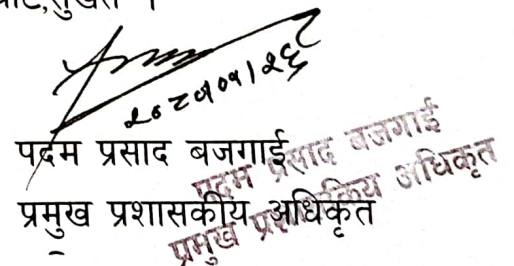 २०८१०१।२६
पदम प्रसाद बजगाई
प्रमुख प्रशासकीय अधिकृत
पदम प्रसाद बजगाई
प्रमुख प्रशासकिय अधिकृत